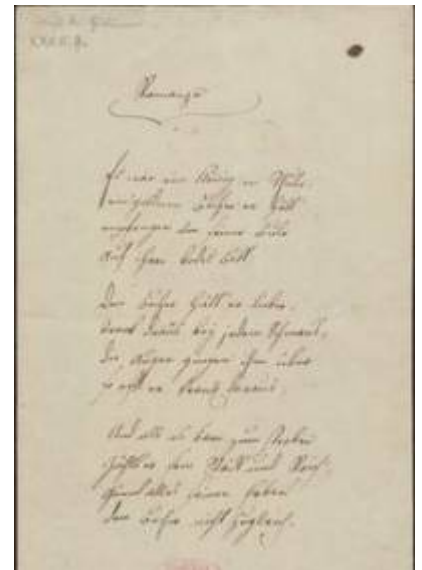 Romanze
Es war ein König in Thule
ein goldnen Becher er hätt
empfangen von seiner Buhle
auf ihrem Todesbett.
Den Becher hätt er lieber,
trank draus bey jedem Schmaus,
die Augen gingen ihm über
so oft er trank daraus.
Und als es kam zum sterben
zählt er Städt und Reich,
gönnt alles seinen Erben
den Becher nicht zugleich.